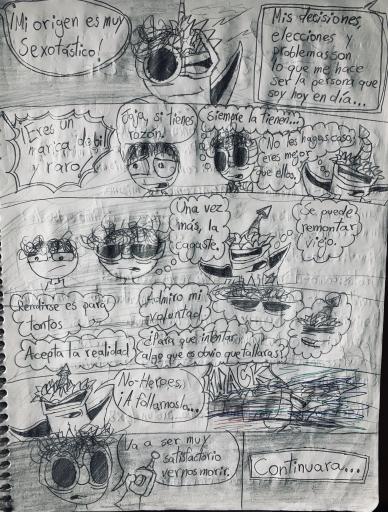 ¡Mi origen es muy
Sexotástico!
Mis decisiones,
elecciones y
problemas son
lo que me hace
ser la persona que
soy hoy en día...
¡Eres un
marica, débil
y raro
Jaja, si tienes
razón.
Siempre la tienen...
No les hagas caso,
eres mejor
que ellos.
Una vez
más, la
cagaste.
Se puede
remontar
viejo.
Rendirse es para
tontos
Admiro mi
voluntad
Acepta la realidad
¿Para que intentar
algo que es obvio que fallaras?
No-Heroes,
¡A follarnosla...
Va a ser muy
satisfactorio
vernos morir.
Continuara...